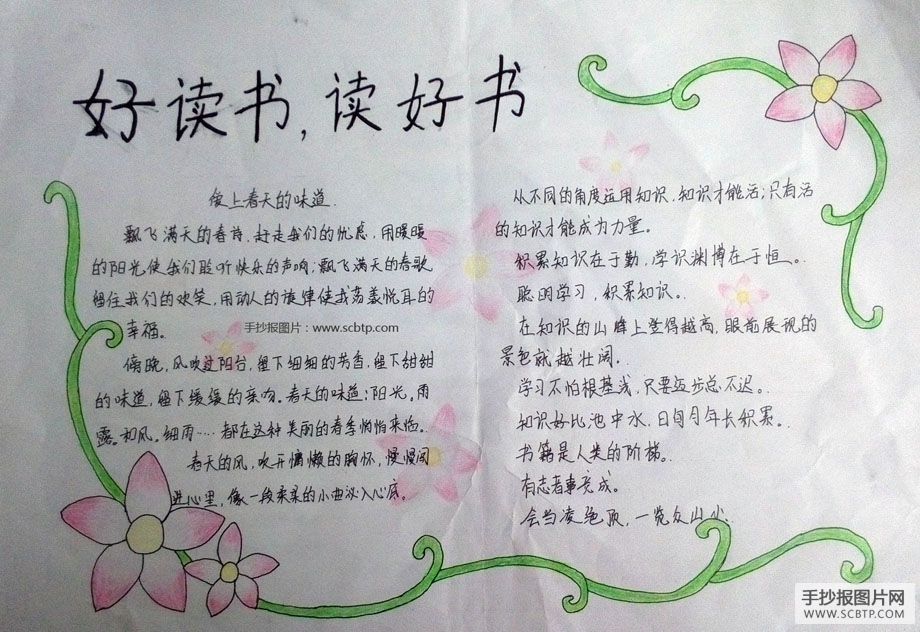 好读书，读好书
爱上春天的味道
飘飞满天的春诗，赶走我们的忧虑，用暖暖
的阳光使我们聆听快乐的声响；飘飞满天的春歌
留住我们的欢笑，用动人的旋律使我荡羡悦耳的
幸福。
手抄报图片：www.scbtp.com
傍晚，风吹过阳台，留下细细的芳香，留下甜甜
的味道，留下缓缓的亲吻。春天的味道：阳光，雨
露。和风。细雨……都在这种美丽的春季悄悄来临。
春天的风，吹开慵懒的胸怀，慢慢闯
进心里，像一段柔柔的小曲沁入心底。
从不同的角度运用知识，知识才能活；只有活
的知识才能成为力量。
积累知识在于勤，学识渊博在于恒。
聪明学习，积累知识。
在知识的山峰上登得越高，眼前展现的
景色就越壮阔。
学习不怕根基浅，只要迈步总不迟。
知识好比池中水，日旬月年长积累。
书籍是人类的阶梯。
有志者事竟成。
会当凌绝顶，一览众山小
手抄报图片网
WWW.SCBTP.COM